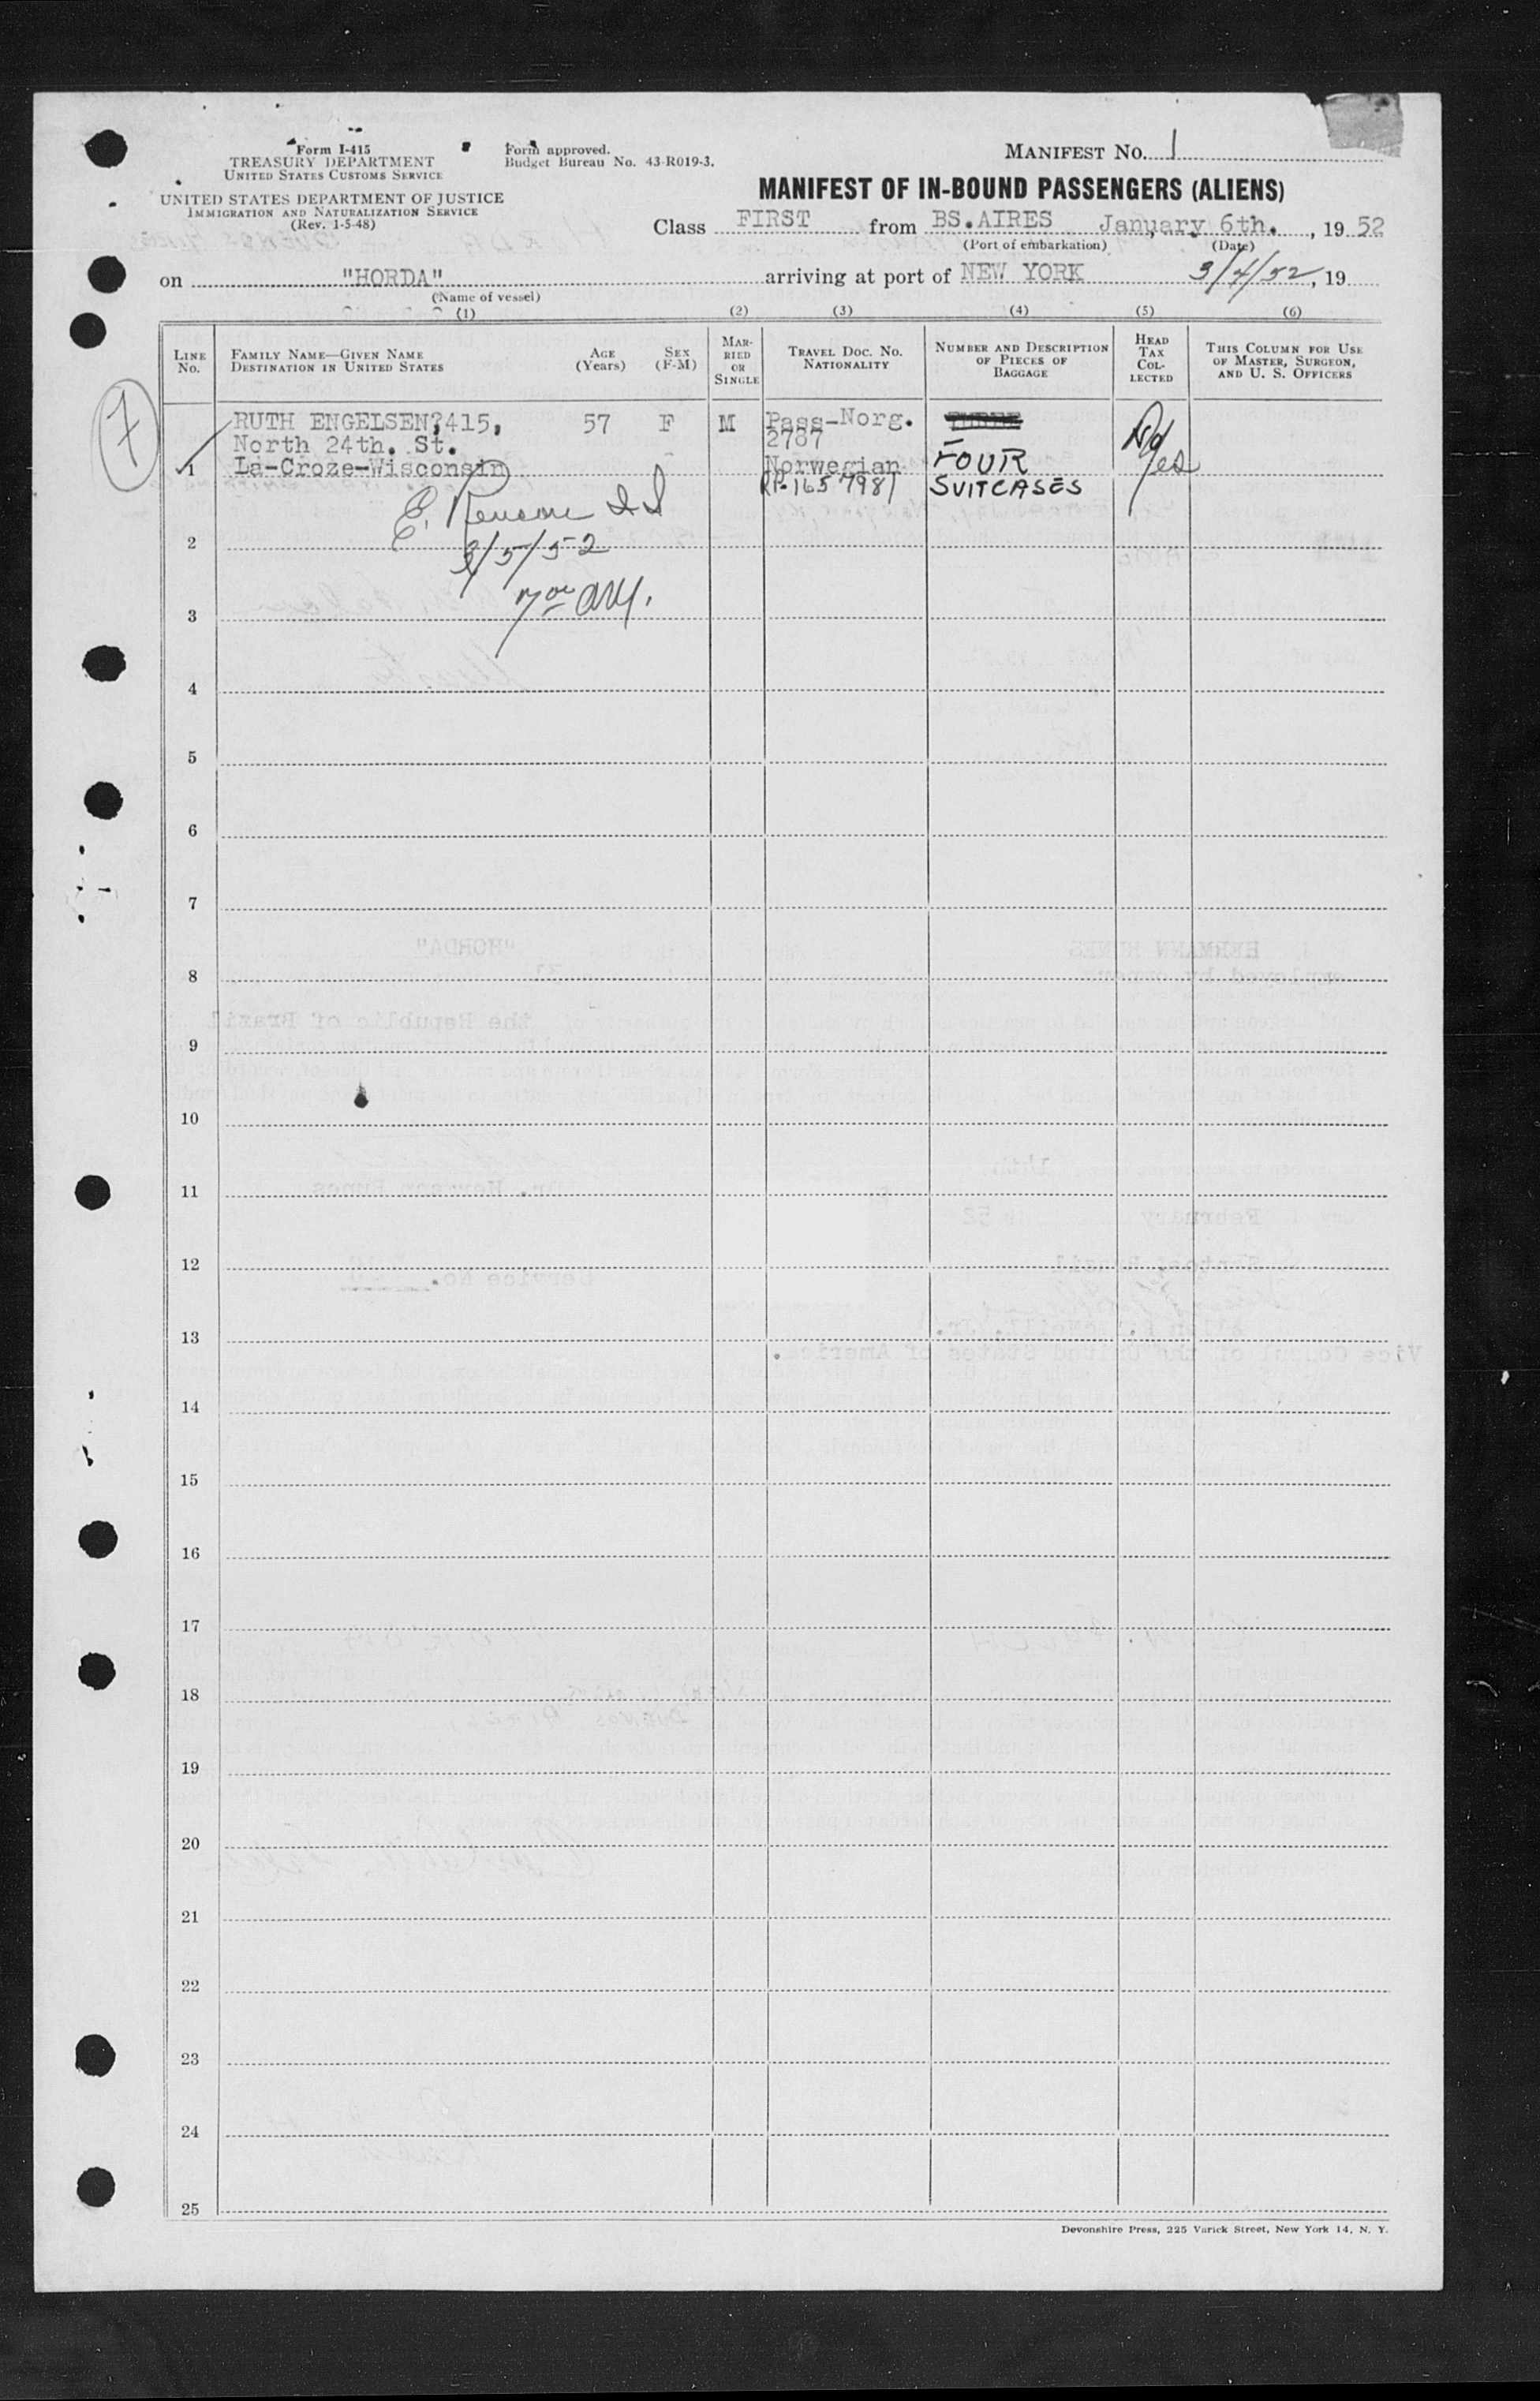 Form I-415
TREASURY DEPARTMENT
UNITED STATES CUSTOMS SERVICE
UNITED STATES DEPARTMENT OF JUSTICE
IMMIGRATION AND NATURALIZATION SERVICE
(Rev. 1-5-48)
Form approved.
Budget Bureau No. 43-R019-3.
MANIFEST NO. 1
MANIFEST OF IN-BOUND PASSENGERS (ALIENS)
Class FIRST from BS.AIRES January 6th. , 19 52
(Port of embarkation) (Date)
on "HORDA" arriving at port of NEW YORK 3/4/52, 19
(Name of vessel)
(1) (2) (3) (4) (5) (6)
LINE NO.
FAMILY NAME—GIVEN NAME
DESTINATION IN UNITED STATES
AGE (Years)
SEX (F-M)
MARRIED OR SINGLE
TRAVEL DOC. NO.
NATIONALITY
NUMBER AND DESCRIPTION
OF PIECES OF
BAGGAGE
HEAD TAX COLLECTED
THIS COLUMN FOR USE
OF MASTER, SURGEON,
AND U. S. OFFICERS
7
RUTH ENGELSEN?415, 57 F M Pass-Norg.
North 24th. St. 2787
1 La-Croze-Wisconsin Norwegian FOUR
RP-1657981 SUITCASES
Yes
E.
3/5/52
2
3
4
5
6
7
8
9
10
11
12
13
14
15
16
17
18
19
20
21
22
23
24
25
Devonshire Press, 225 Varick Street, New York 14, N. Y.